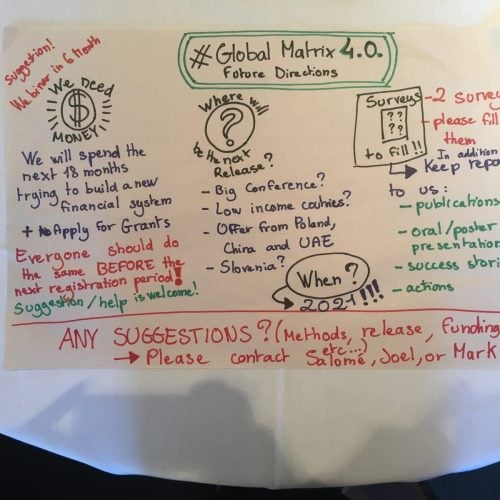 # Global Matrix 4.0.
Future Directions
Suggestion!
Webinar in 6 Month
We Need
$
MONEY
We will spend the
next 18 months
trying to build a new
financial system
+ Apply For Grants
Everyone should do
the same BEFORE the
next registration period!
Suggestion/help is welcome!
Where will
?
be the next
Release?
- Big Conference?
- Low income coutries?
- Offer from Poland,
China and UAE
- Slovenia?
When?
2021!!!
Surveys
? ?
? ?
to fill!!
- 2 surve
- please fill
them
In addition
Keep repo
to us:
- publications
- oral/poster
presentation
- success stori
- actions
ANY SUGGESTIONS? (Methods, release, Funding
etc...)
→ Please contact Salomé, Joel, or Mark